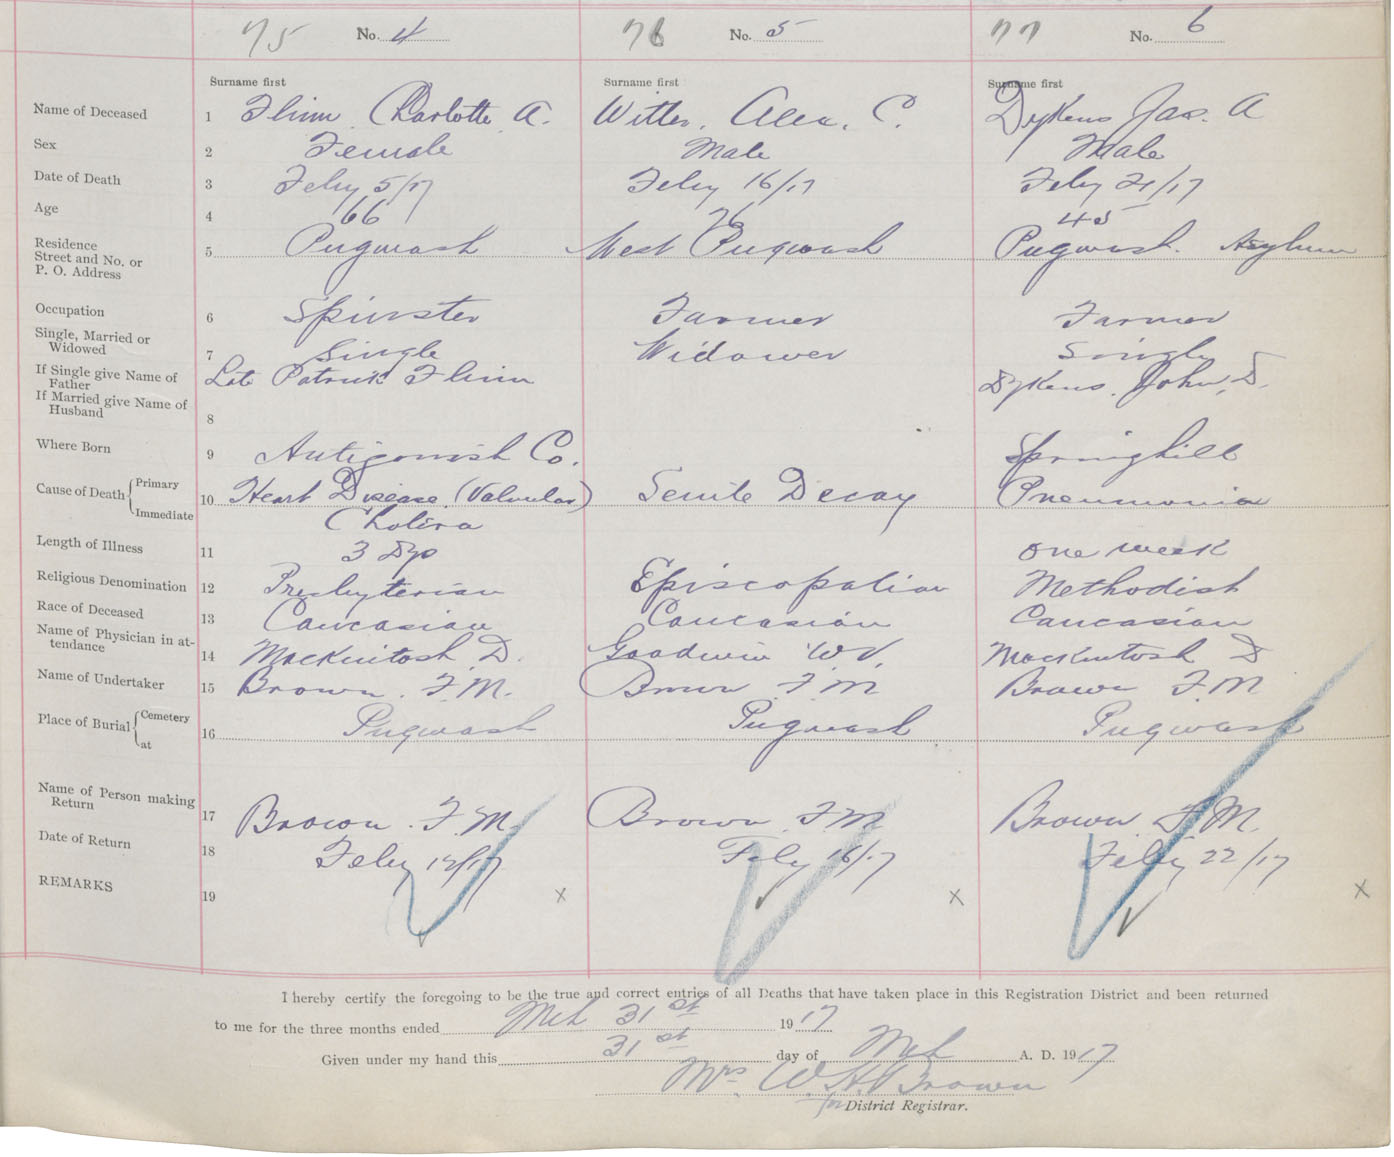 75 No. 4 76 No. 5 77 No. 6
Surname first Surname first Surname first
Name of Deceased 1 Flinn, Charlotte A. Witter, Alex. C. Dykens Jas. A
Sex 2 Female Male Male
Date of Death 3 Feby 5/17 Feby 16/17 Feby 21/17
Age 4 66 76 45
Residence Street and No. or P. O. Address 5 Pugwash West Pugwash Pugwash. Asylum
Occupation 6 Spinster Farmer Farmer
Single, Married or Widowed 7 Single Widower Single
If Single give Name of Father Late Patrick Flinn Dykens, John, D.
If Married give Name of Husband 8
Where Born 9 Antigonish Co. Springhill
Cause of Death Primary 10 Heart Disease (Valvular) Senile Decay Pneumonia
Immediate Cholera
Length of Illness 11 3 Dys one week
Religious Denomination 12 Presbyterian Episcopalian Methodist
Race of Deceased 13 Caucasian Caucasian Caucasian
Name of Physician in attendance 14 Mackintosh D. Goodwin W.V. Mackintosh D
Name of Undertaker 15 Brown. F.M. Brown F M Brown F.M
Place of Burial Cemetery at 16 Pugwash Pugwash Pugwash
Name of Person making Return 17 Brown. F.M. Brown F M Brown F.M.
Date of Return 18 Feby 12/17 Feby 16/17 Feby 22/17
REMARKS 19 x x x
I hereby certify the foregoing to be the true and correct entries of all Deaths that have taken place in this Registration District and been returned
to me for the three months ended Mch 31st 1917
Given under my hand this 31st day of Mch A. D. 1917
Mrs W.H. Brown
for District Registrar.